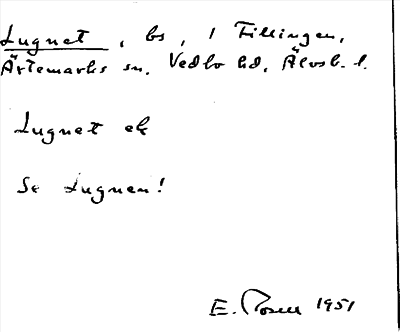 Lugnet, bs, 1 Fillingen,
Ärtemarks sn. Vedbo hd, Älvsb. l.
Lugnet ek
Se Lugnen!
E. Rosell 1951